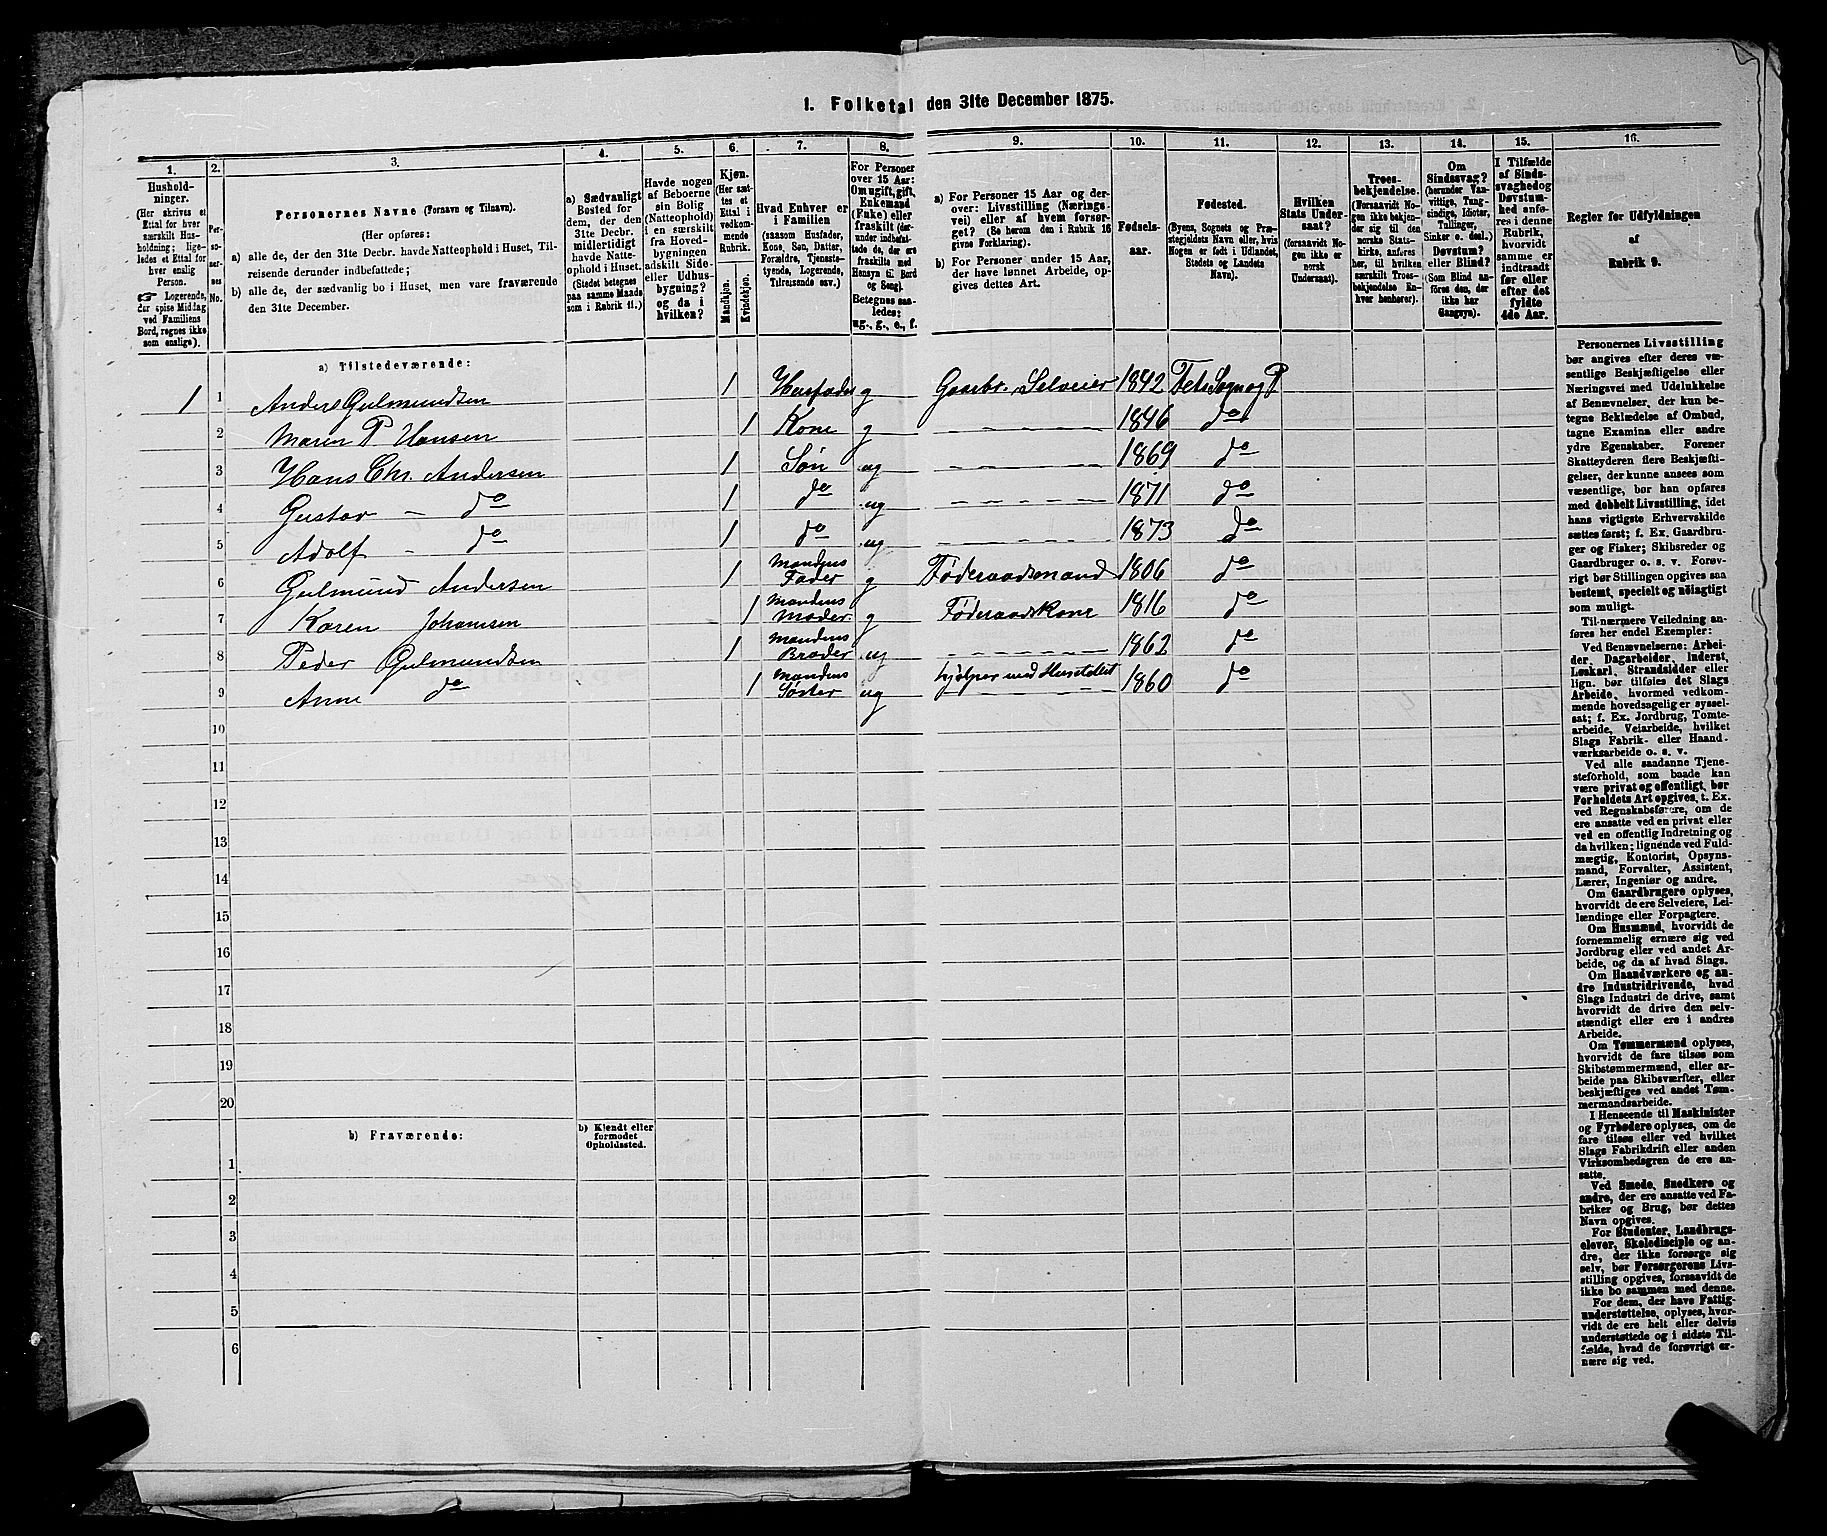 1. Folketal den 31te December 1875.
1.
Hushold-
ninger.
(Her skrives et
Ettal for hver
særskilt Hus-
holdning; lige-
ledes et Ettal for
hver enslig
Person.
☞ Logerende,
der spise Middag
ved Familiens
Bord, regnes ikke
som enslige).
2.
Per-
so-
ner-
nes
No.
3.
Personernes Navne (Fornavn og Tilnavn).
(Her opføres:
a) alle de, der den 31te Decbr. havde Natteophold i Huset, Til-
reisende derunder indbefattede;
b) alle de, der sædvanlig bo i Huset, men vare fraværende
den 31te December.
4.
a) Sædvanligt
Bosted for
dem, der den
31te Decbr.
midlertidigt
havde Natte-
ophold i Huset.
(Stedet betegnes
paa samme Maade
som i Rubrik 11.)
5.
Havde nogen
af Beboerne
sin Bolig
(Natteophold)
i en særskilt
fra Hoved-
bygningen
adskilt Side-
eller Udhus-
bygning?
og da i
hvilken?
6.
Kjøn.
(Her sæt-
tes et
Ettal i
vedkom-
mende
Rubrik.
Mandkjøn.
Kvindekjøn.
7.
Hvad Enhver er
i Familien
(saasom Husfader,
Kone, Søn, Datter,
Forældre, Tjeneste-
tyende, Logerende,
Tilreisende osv.)
8.
For Personer
over 15 Aar:
Om ugift, gift,
Enkemand
(Enke) eller
fraskilt (der-
under indbefat-
tede de, der ere
fraskilte med
Hensyn til Bord
og Seng).
Betegnes saa-
ledes:
ug., g., e., f.
9.
a) For Personer 15 Aar og der-
over: Livsstilling (Nærings-
vei) eller af hvem forsør-
get? (Se herom den i Rubrik 16
givne Forklaring).
b) For Personer under 15 Aar,
der have lønnet Arbeide, op-
gives dettes Art.
10.
Fødsels-
aar.
11.
Fødested.
(Byens, Sognets og Præ-
stegjeldets Navn eller, hvis
Nogen er født i Udlandet,
Stedets og Landets
Navn).
12.
Hvilken
Stats Under-
saat?
(forsaavidt No-
gen ikke er
norsk
Undersaat).
13.
Troes-
bekjendelse.
(Forsaavidt No-
gen ikke bekjen-
der sig til den
norske Stats-
kirke, anføres
her, til hvilken
særskilt Troes-
bekjendelse En-
hver henhører).
14.
Om
Sindssvag?
(herunder Van-
vittige, Tung-
sindige, Idioter,
Tullinger,
Sinker o. desl.)
Døvstum?
eller Blind?
(Som Blind an-
føres den, der
ikke har
Gangsyn).
15.
I Tilfælde
af Sinds-
svaghed og
Døvstum-
hed anfø-
res i denne
Rubrik,
hvorvidt
samme er
indtraadt
før eller
efter det
fyldte
4de Aar.
16.
Regler for Udfyldningen
af
Rubrik 9.
a) Tilstedeværende:
1 1 Anders Gulmundsen 1 Husfader g Gaardbr. Selveier 1842 Fets Sogn og P
2 Maren P Hansen 1 Kone g 1846 do
3 Hans Chr. Andersen 1 Søn ug 1869 do
4 Gustav – do 1 do ug 1871 do
5 Adolf – do 1 do ug 1873 do
6 Gulmund Andersen 1 Mandens Fader g Føderaadsmand 1806 do
7 Karen Johansen 1 Mandens Moder g Føderaadskone 1816 do
8 Peder Gulmundsen 1 Mandens Broder ug 1862 do
9 Anne do 1 Mandens Søster ug hjelper med Husstellet 1860 do
10
11
12
13
14
15
16
17
18
19
20
b) Fraværende:
b) Kjendt eller
formodet
Opholdssted.
1
2
3
4
5
6
Personernes Livsstilling
bør angives efter deres væ-
sentlige Beskjæftigelse eller
Næringsvei med Udelukkelse
af Benævnelser, der kun be-
tegne Beklædelse af Ombud,
tagne Examina eller andre
ydre Egenskaber. Forener
Skatteyderen flere Beskjæfti-
gelser, der kunne ansees som
væsentlige, bør han opføres
med dobbelt Livsstilling, idet
hans vigtigste Erhvervskilde
sættes først; f. Ex. Gaardbru-
ger og Fisker; Skibsreder og
Gaardbruger o. s. v. Forøv-
rigt bør Stillingen opgives saa
bestemt, specielt og nøiagtigt
som muligt.
Til nærmere Veiledning an-
føres her endel Exempler:
Ved Benævnelserne: Arbei-
der, Dagarbeider, Inderst,
Løskarl, Strandsidder eller
lign. bør tilføies det Slags
Arbeide, hvormed vedkom-
mende hovedsagelig er syssel-
sat; f. Ex. Jordbrug, Tomte-
arbeide, Veiarbeide, hvilket
Slags Fabrik- eller Haand-
værksarbeide o. s. v.
Ved alle saadanne Tjene-
steforhold, som baade kan
være privat og offentligt, bør
Forholdets Art opgives, t. Ex.
ved Regnskabsførere, om de
ere ansatte ved en privat eller
ved en offentlig Indretning og
da hvilken; lignende ved Fuld-
mægtig, Kontorist, Opsyns-
mand, Forvalter, Assistent,
Lærer, Ingeniør og andre.
Om Gaardbrugere oplyses,
hvorvidt de ere Selveiere, Lei-
lændinge eller Forpagtere.
Om Husmænd, hvorvidt de
fornemmelig ernære sig ved
Jordbrug eller ved andet Ar-
beide, og da af hvad Slags.
Om Haandværkere og an-
dre Industridrivende, hvad
Slags Industri de drive, samt
hvorvidt de drive den selv-
stændigt eller ere i andres
Arbeide.
Om Tømmermænd oplyses,
hvorvidt de fare tilsøs som
Skibstømmermænd, eller ar-
beide paa Skibsværfter, eller
beskjæftiges ved andet Tøm-
mermandsarbeide.
I Henseende til Maskinister
og Fyrbødere oplyses, om de
fare tilsøs eller ved hvilket
Slags Fabrikdrift eller anden
Virksomhedsgren de ere an-
satte.
Ved Smede, Snedkere og
andre, der ere ansatte ved Fa-
briker og Brug, bør dettes
Navn opgives.
For Studenter, Landbrugs-
elever, Skoledisciple og an-
dre, der ikke forsørge sig
selv, bør Forsørgerens Livs-
stilling opgives, forsaavidt de
ikke bo sammen med denne.
For dem, der have Fattig-
understøttelse, oplyses, hvor-
vidt de ere helt eller delvis
understøttede og i sidste Til-
fælde, hvad de forøvrigt er-
nære sig ved.